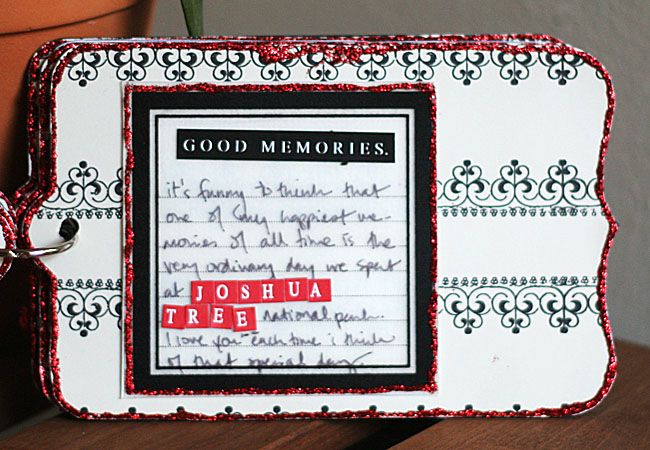 GOOD MEMORIES.
it's funny to think that
one of my happiest me-
mories of all time is the
very ordinary day we spent
at JOSHUA
TREE national park.
I love you each time i think
of that special day